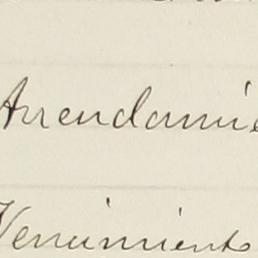 Arrendamie
Vencimiento